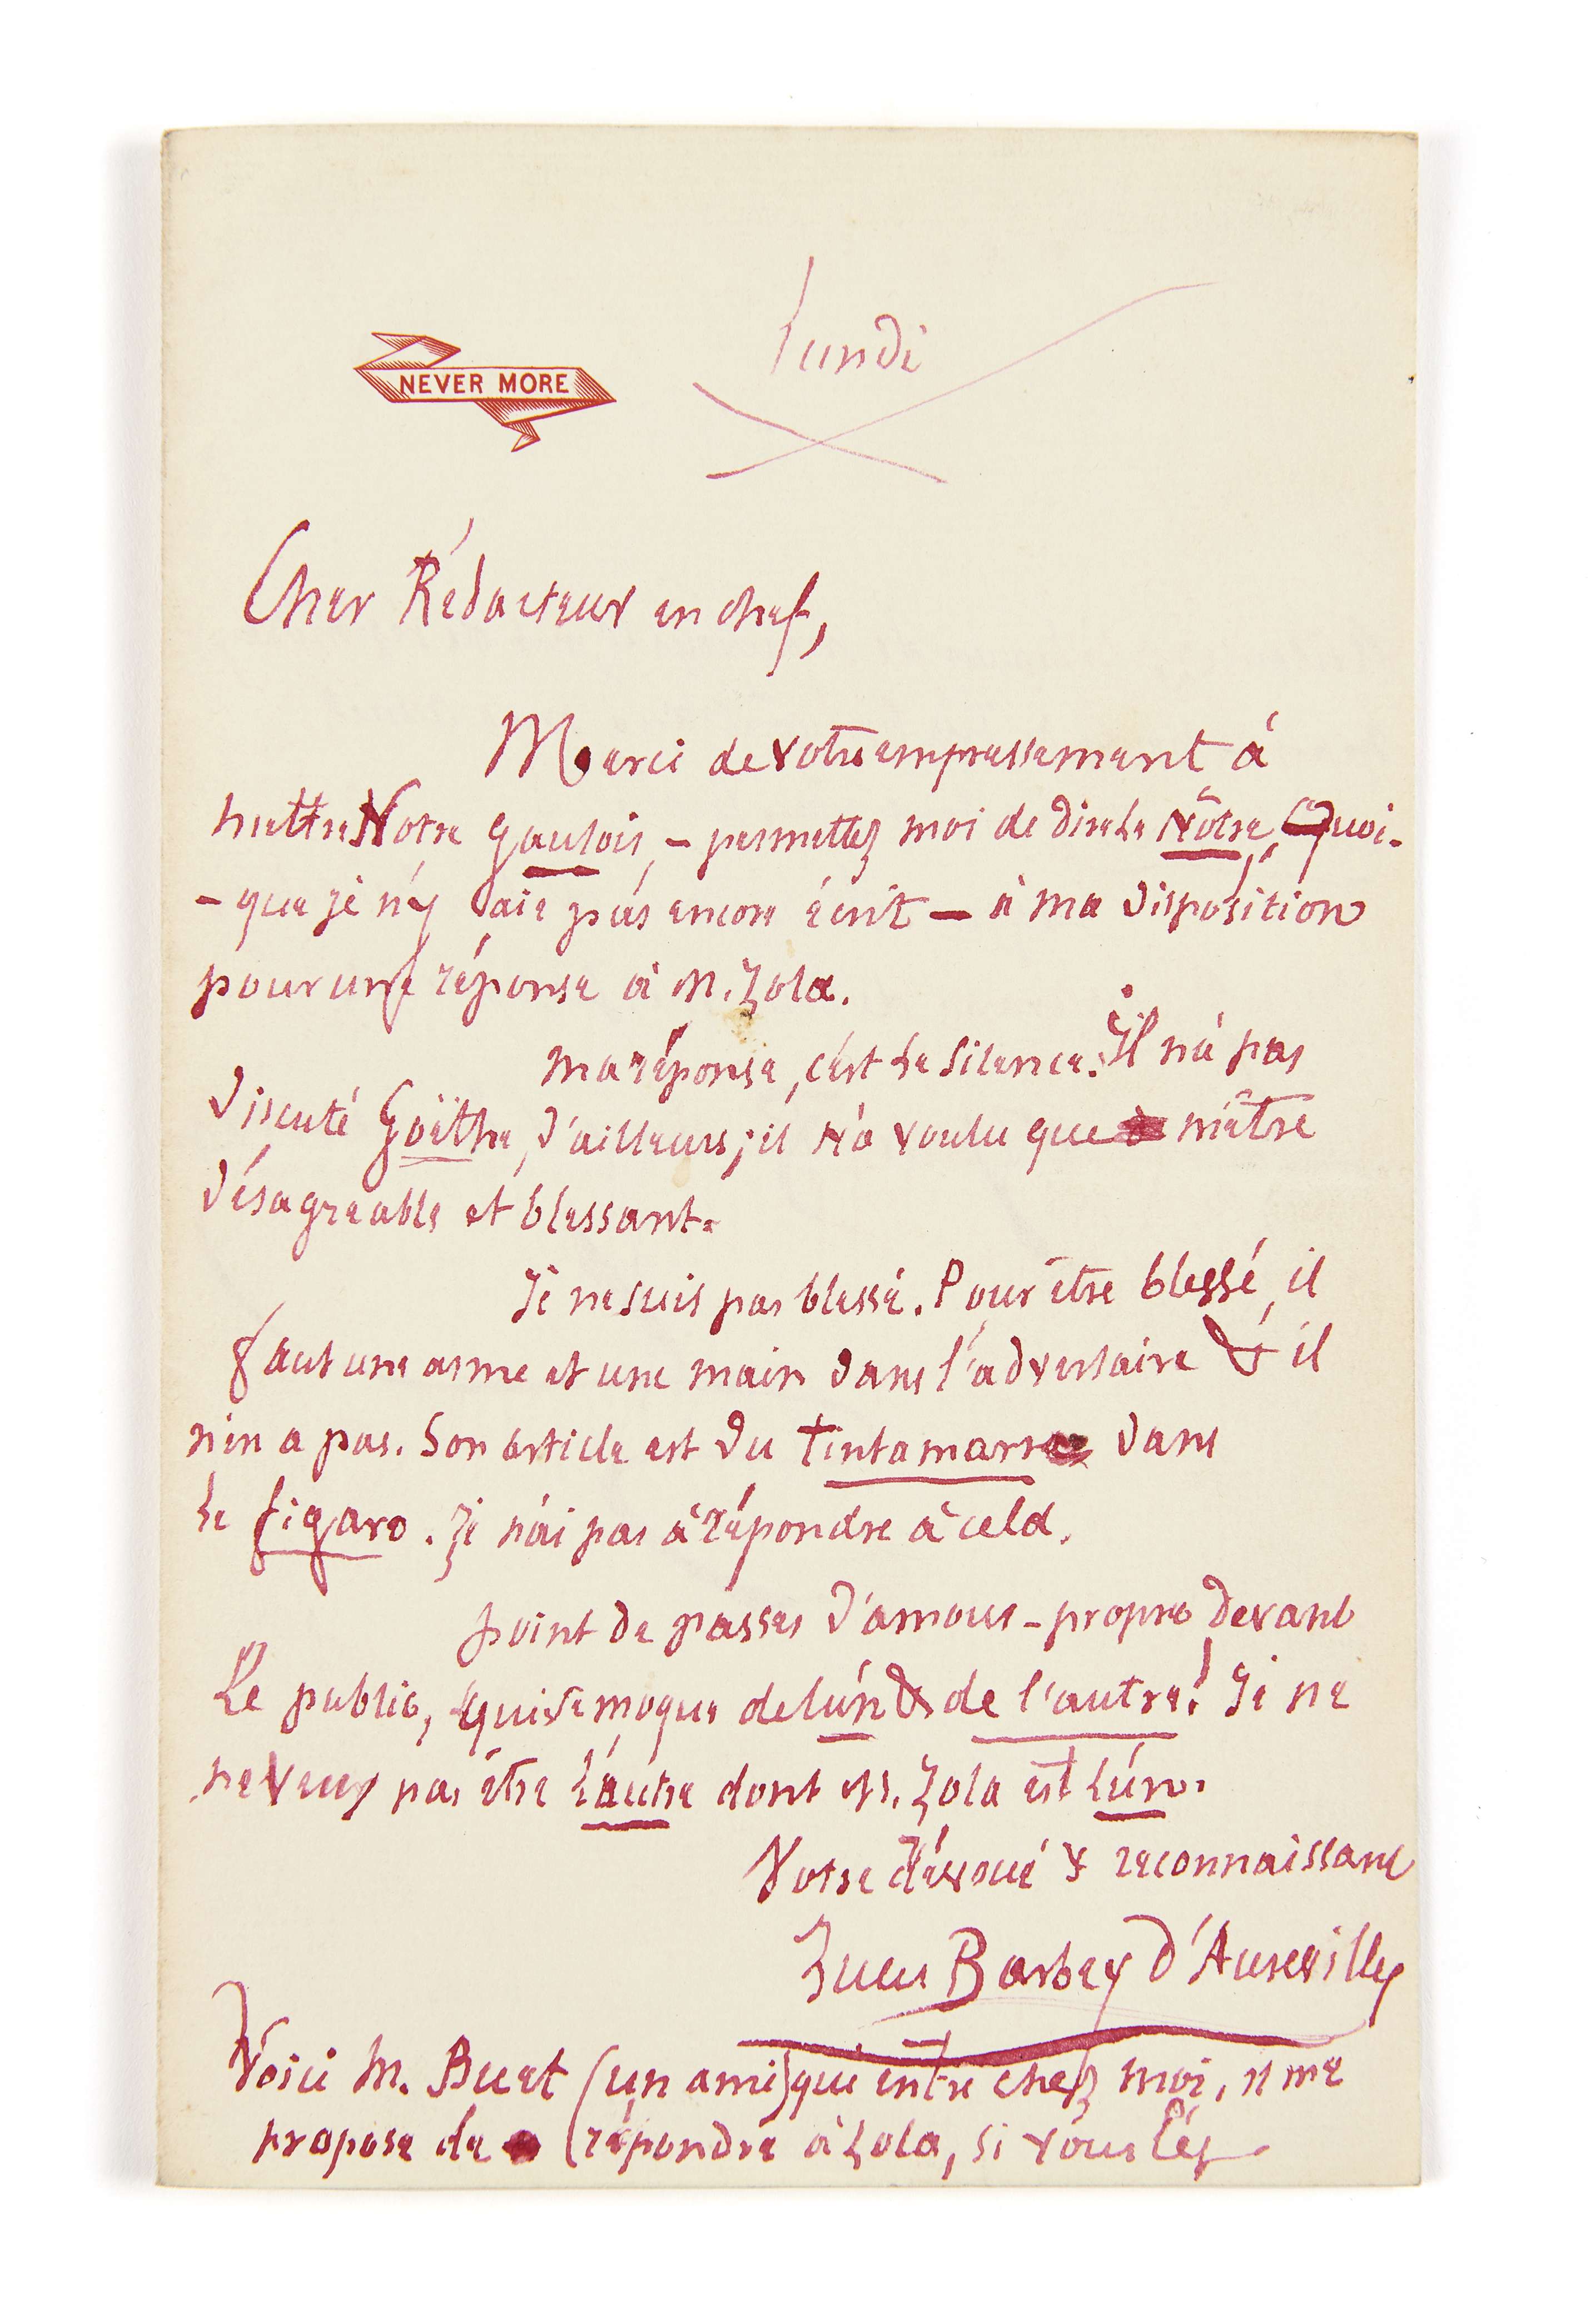 NEVER MORE
Lundi
Cher Rédacteur en chef,
Merci de votre empressement à
mettre Notre Gaulois, – permettez moi de dire le Nôtre, Quoi-
– que je n'y aie pas encore écrit – à ma disposition
pour une réponse à M. Zola.
Ma réponse, c'est le silence. Il n'a pas
discuté Goëthe, d'ailleurs; il n'a voulu que m'être
désagréable et blessant.
Je ne suis pas blessé. Pour être blessé, il
faut une arme et une main dans l'adversaire & il
n'en a pas. Son article est du Tintamarre dans
le figaro. Je n'ai pas à répondre à cela.
point de passes d'amour-propre devant
Le public, qui se moque de l'un & de l'autre! Je ne
ne veux pas être l'autre dont M. Zola est l'un.
Votre dévoué & reconnaissant
Jules Barbey d'Aurevilly
Voici M. Buet (un ami) qui entre chez moi, il me
propose de répondre à Zola, si vous